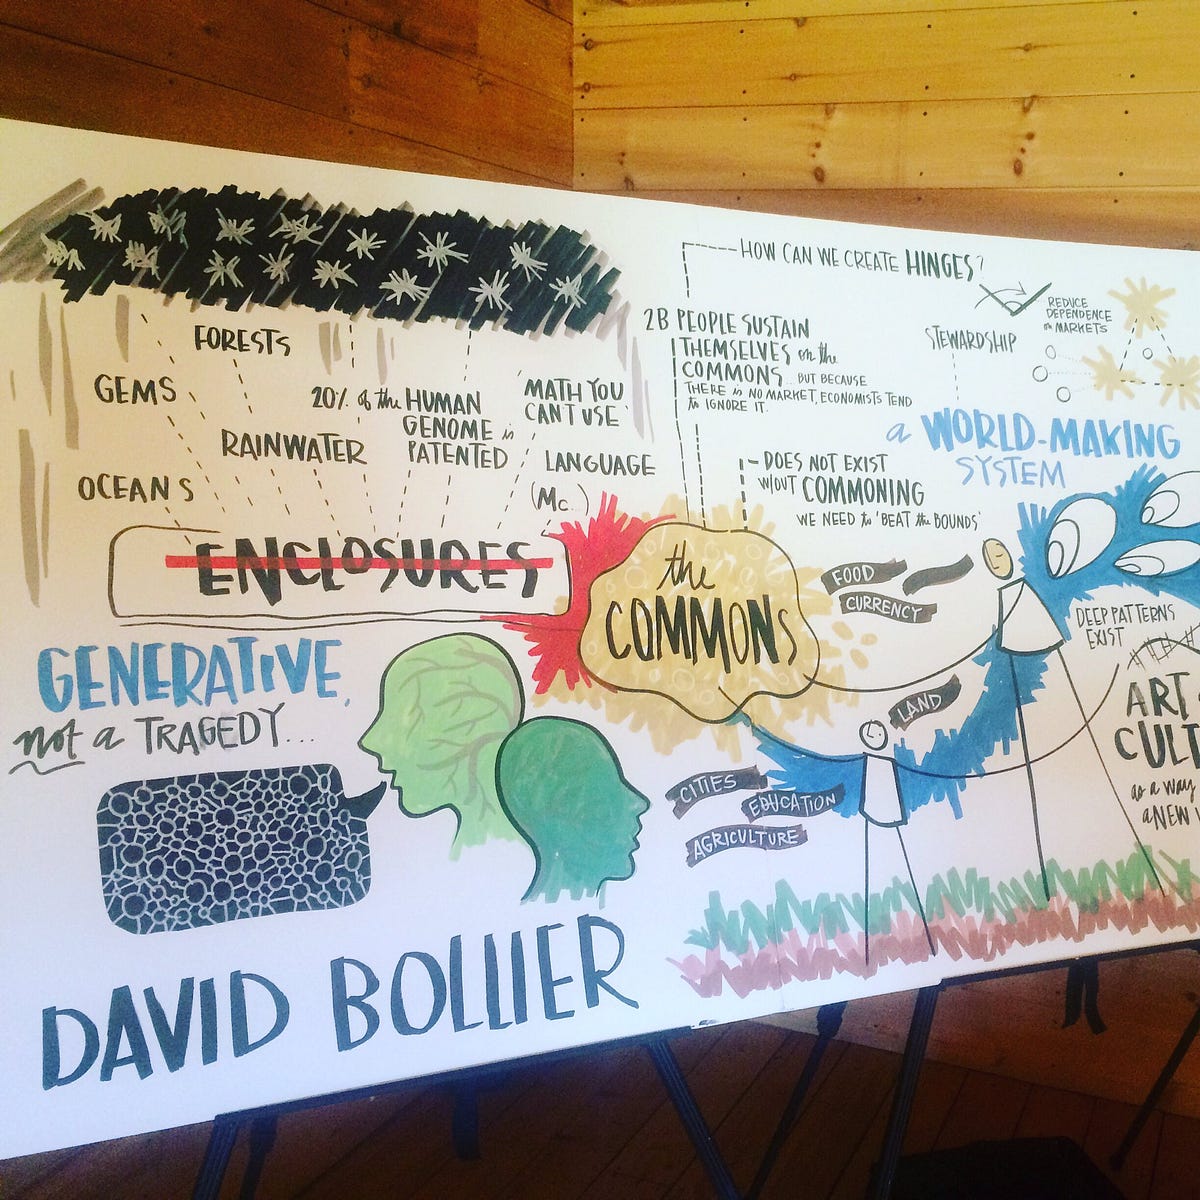 FORESTS
GEMS
20% of the HUMAN
GENOME is
PATENTED
MATH YOU
CAN'T USE
RAINWATER
LANGUAGE
(Mc...)
OCEANS
ENCLOSURES
GENERATIVE,
not a TRAGEDY...
DAVID BOLLIER
HOW CAN WE CREATE HINGES?
2B PEOPLE SUSTAIN
THEMSELVES on the
COMMONS... BUT BECAUSE
THERE is NO MARKET, ECONOMISTS TEND
to IGNORE IT.
STEWARDSHIP
REDUCE
DEPENDENCE
on MARKETS
a WORLD-MAKING
SYSTEM
DOES NOT EXIST
W/OUT COMMONING
WE NEED to 'BEAT the BOUNDS'
the
COMMONS
FOOD
CURRENCY
LAND
CITIES
EDUCATION
AGRICULTURE
DEEP PATTERNS
EXIST
ART
CULT
as a way
a NEW